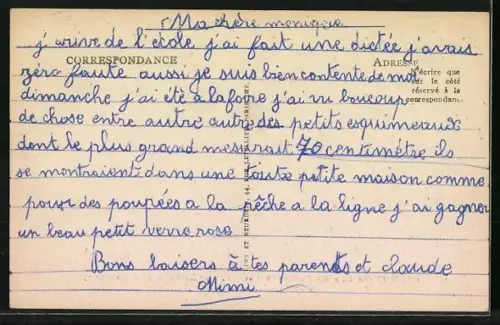 Ma chère monique
j'arive de l'école j'ai fait une dictée j'avais
CORRESPONDANCE
ADRESSE
zéro faute aussi je suis bien contente de moi
dimanche j'ai été a la foire j'ai vu boucoup
de chose entre autre autre des petits esquimeaux
dont le plus grand mesurait 70 centimétre ils
se montraient dans une toute petite maison comme
pour des poupées a la pêche a la ligne j'ai gagner
un beau petit verre rose
Bons baisers à tes parents et claude
Mimi
écrire que
sur le côté
réservé à la
correspondan